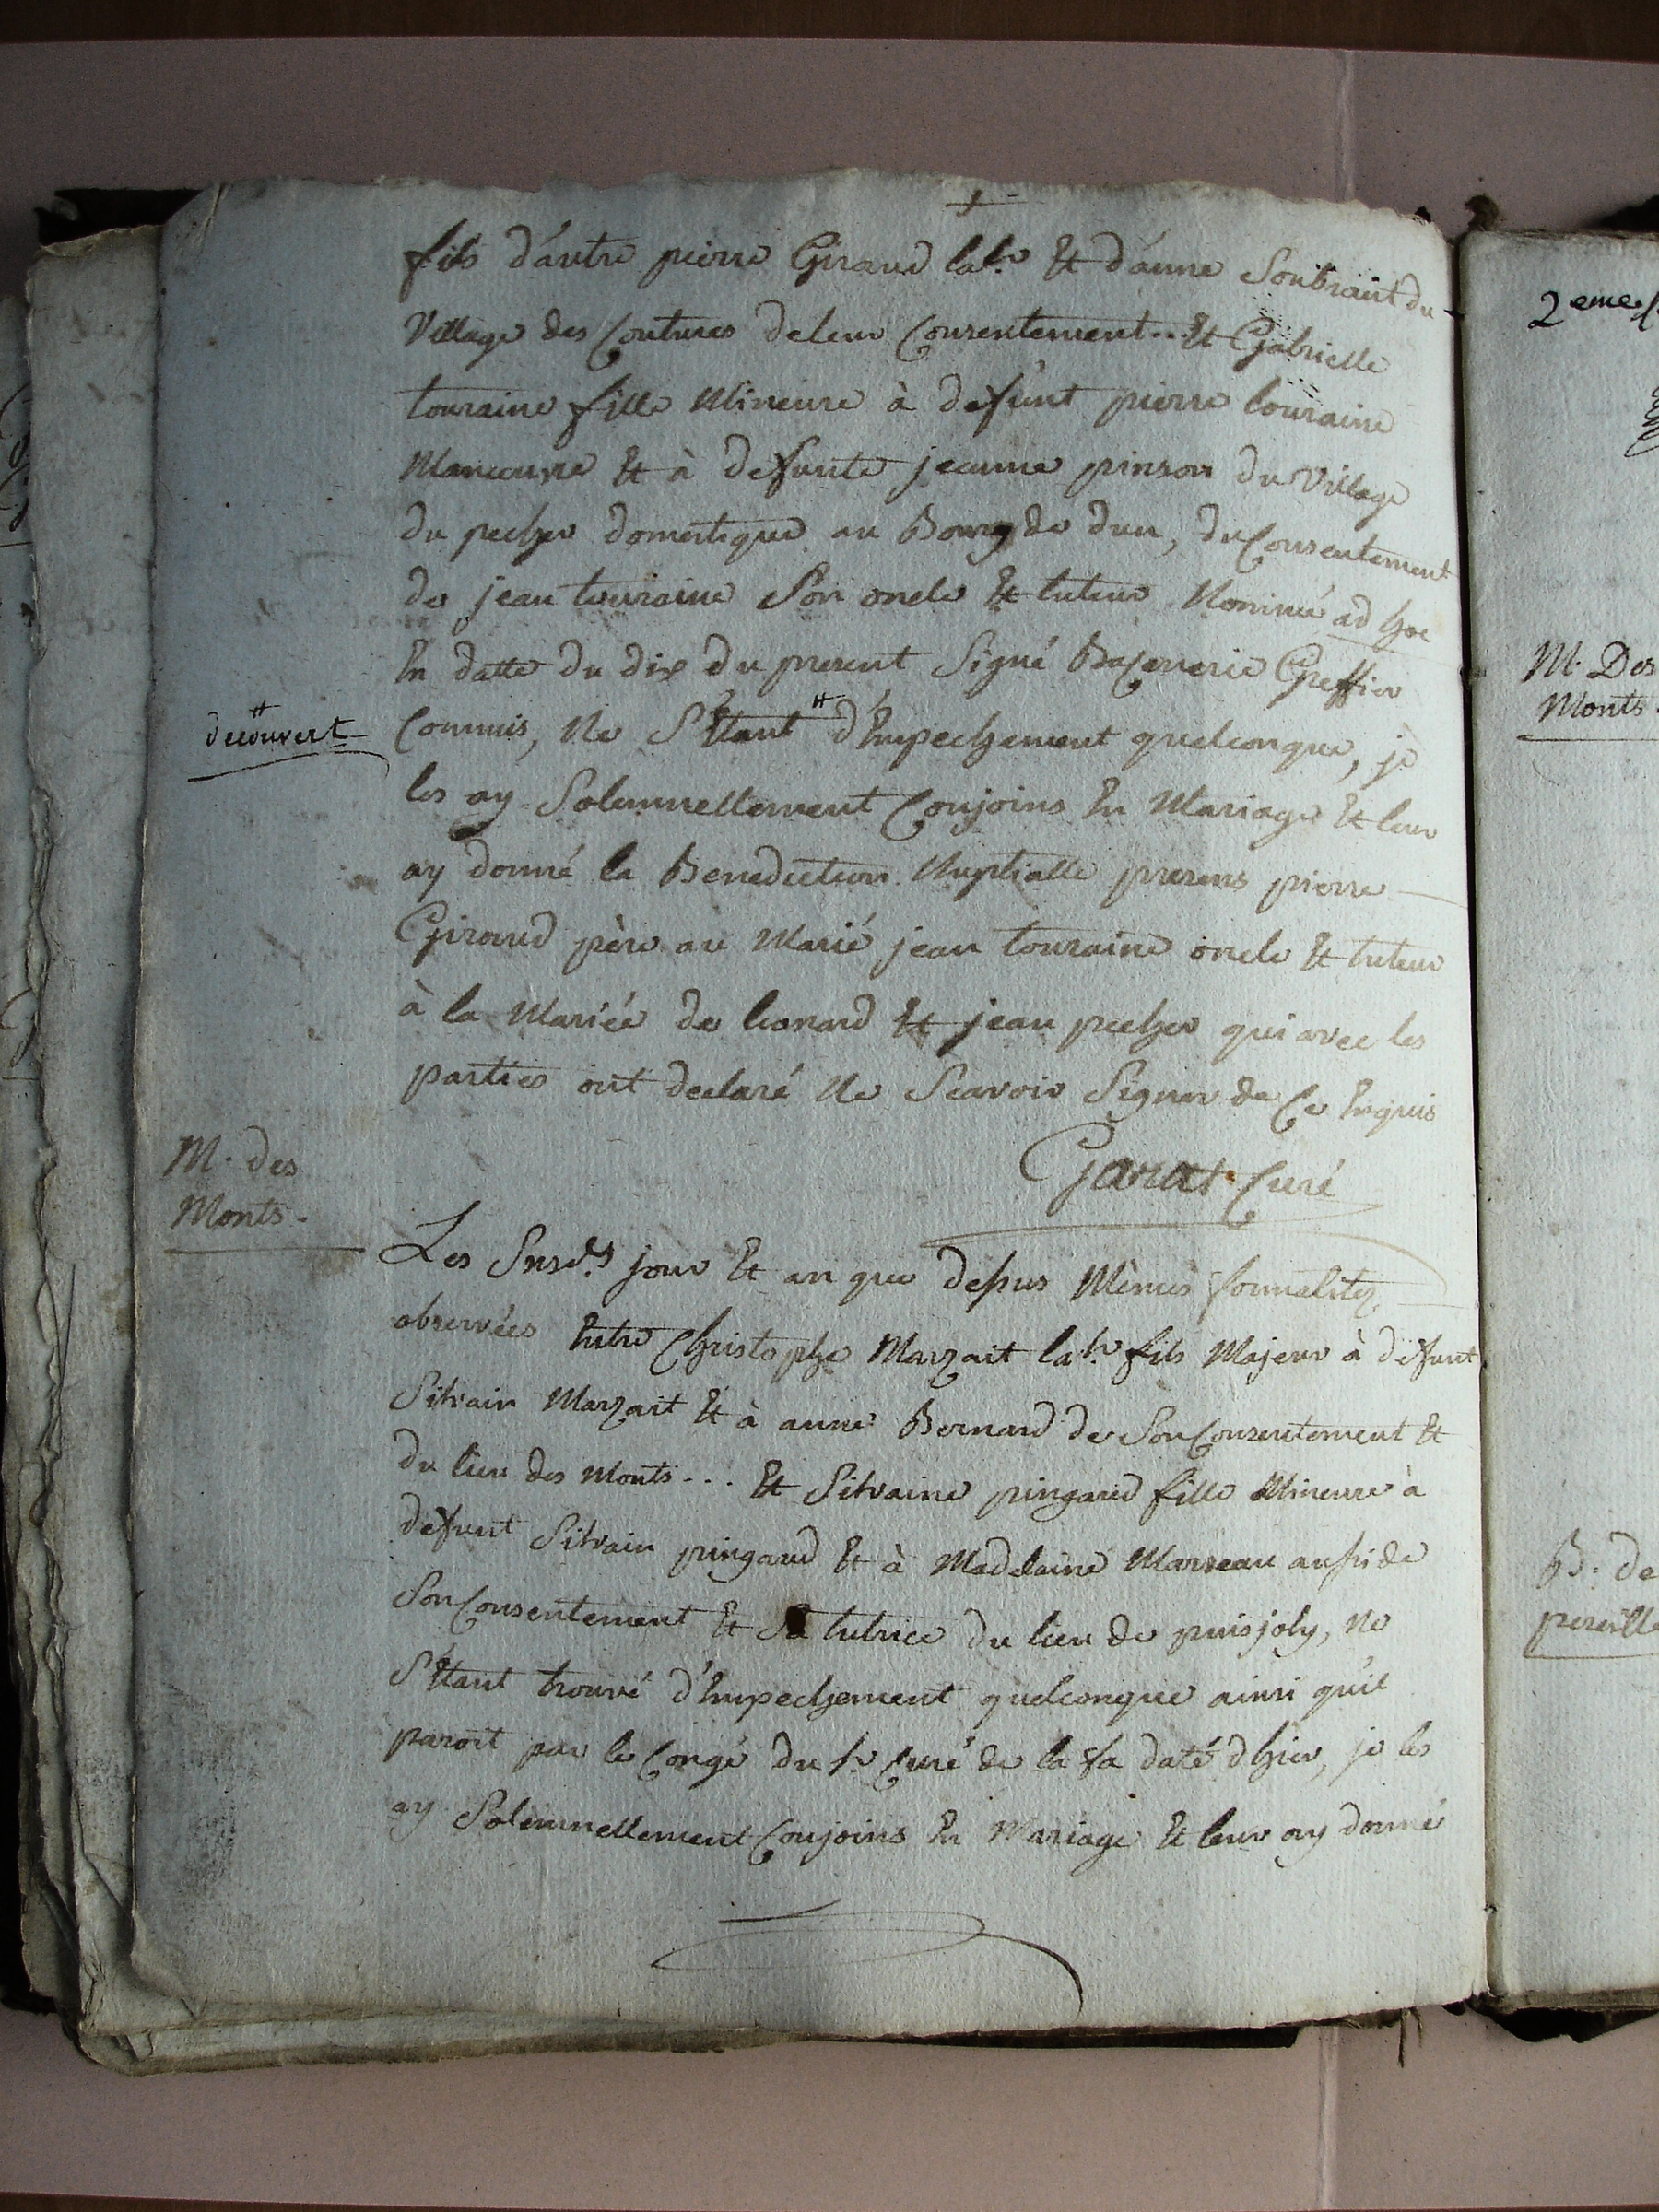 fils d'autre pierre Giraud lab.r Et d'anne Soubrant du
Village des Coutures de leur Consentement... Et Gabrielle
touraine fille Mineure à defunt pierre touraine
Manœuvre Et à defunte jeanne pinson du Village
du pecher domestique au Bourg de dun, du Consentement
de jean touraine Son oncle Et tuteur Nommé ad hoc
En datte du dix du present Signé Greffier
decouvert
Commis, Ne S'Etant # d'Empechement quelconque, je
les ay Solemnellement Conjoins En Mariage Et leur
ay donné la Benediction Nuptialle presens pierre
Giraud père au Marié jean touraine oncle Et tuteur
à la Mariée de leonard Et jean pecher qui avec les
parties ont declaré Ne Scavoir Signer de Ce Enquis
Garat Curé
M. des
Monts.
Les Susd.ts jour Et an que dessus Mêmes formalitez
observées Entre Christophe Marzait lab.r fils Majeur à defunt
Silvain Marzait Et à anne Bernard de Son Consentement Et
du lieu des Monts... Et Silvaine pingaud fille Mineure à
defunt Silvain pingaud Et à Madelaine Marseau aussi de
Son Consentement Et Sa tutrice du lieu de puisjoly, Ne
S'Etant trouvé d'Empechement quelconque ainsi qu'il
paroit par le Congé du S.r Curé de la fa daté d'hier, je les
ay Solemnellement Conjoins En Mariage Et leur ay donné
2eme
M. Des
Monts.
B. de